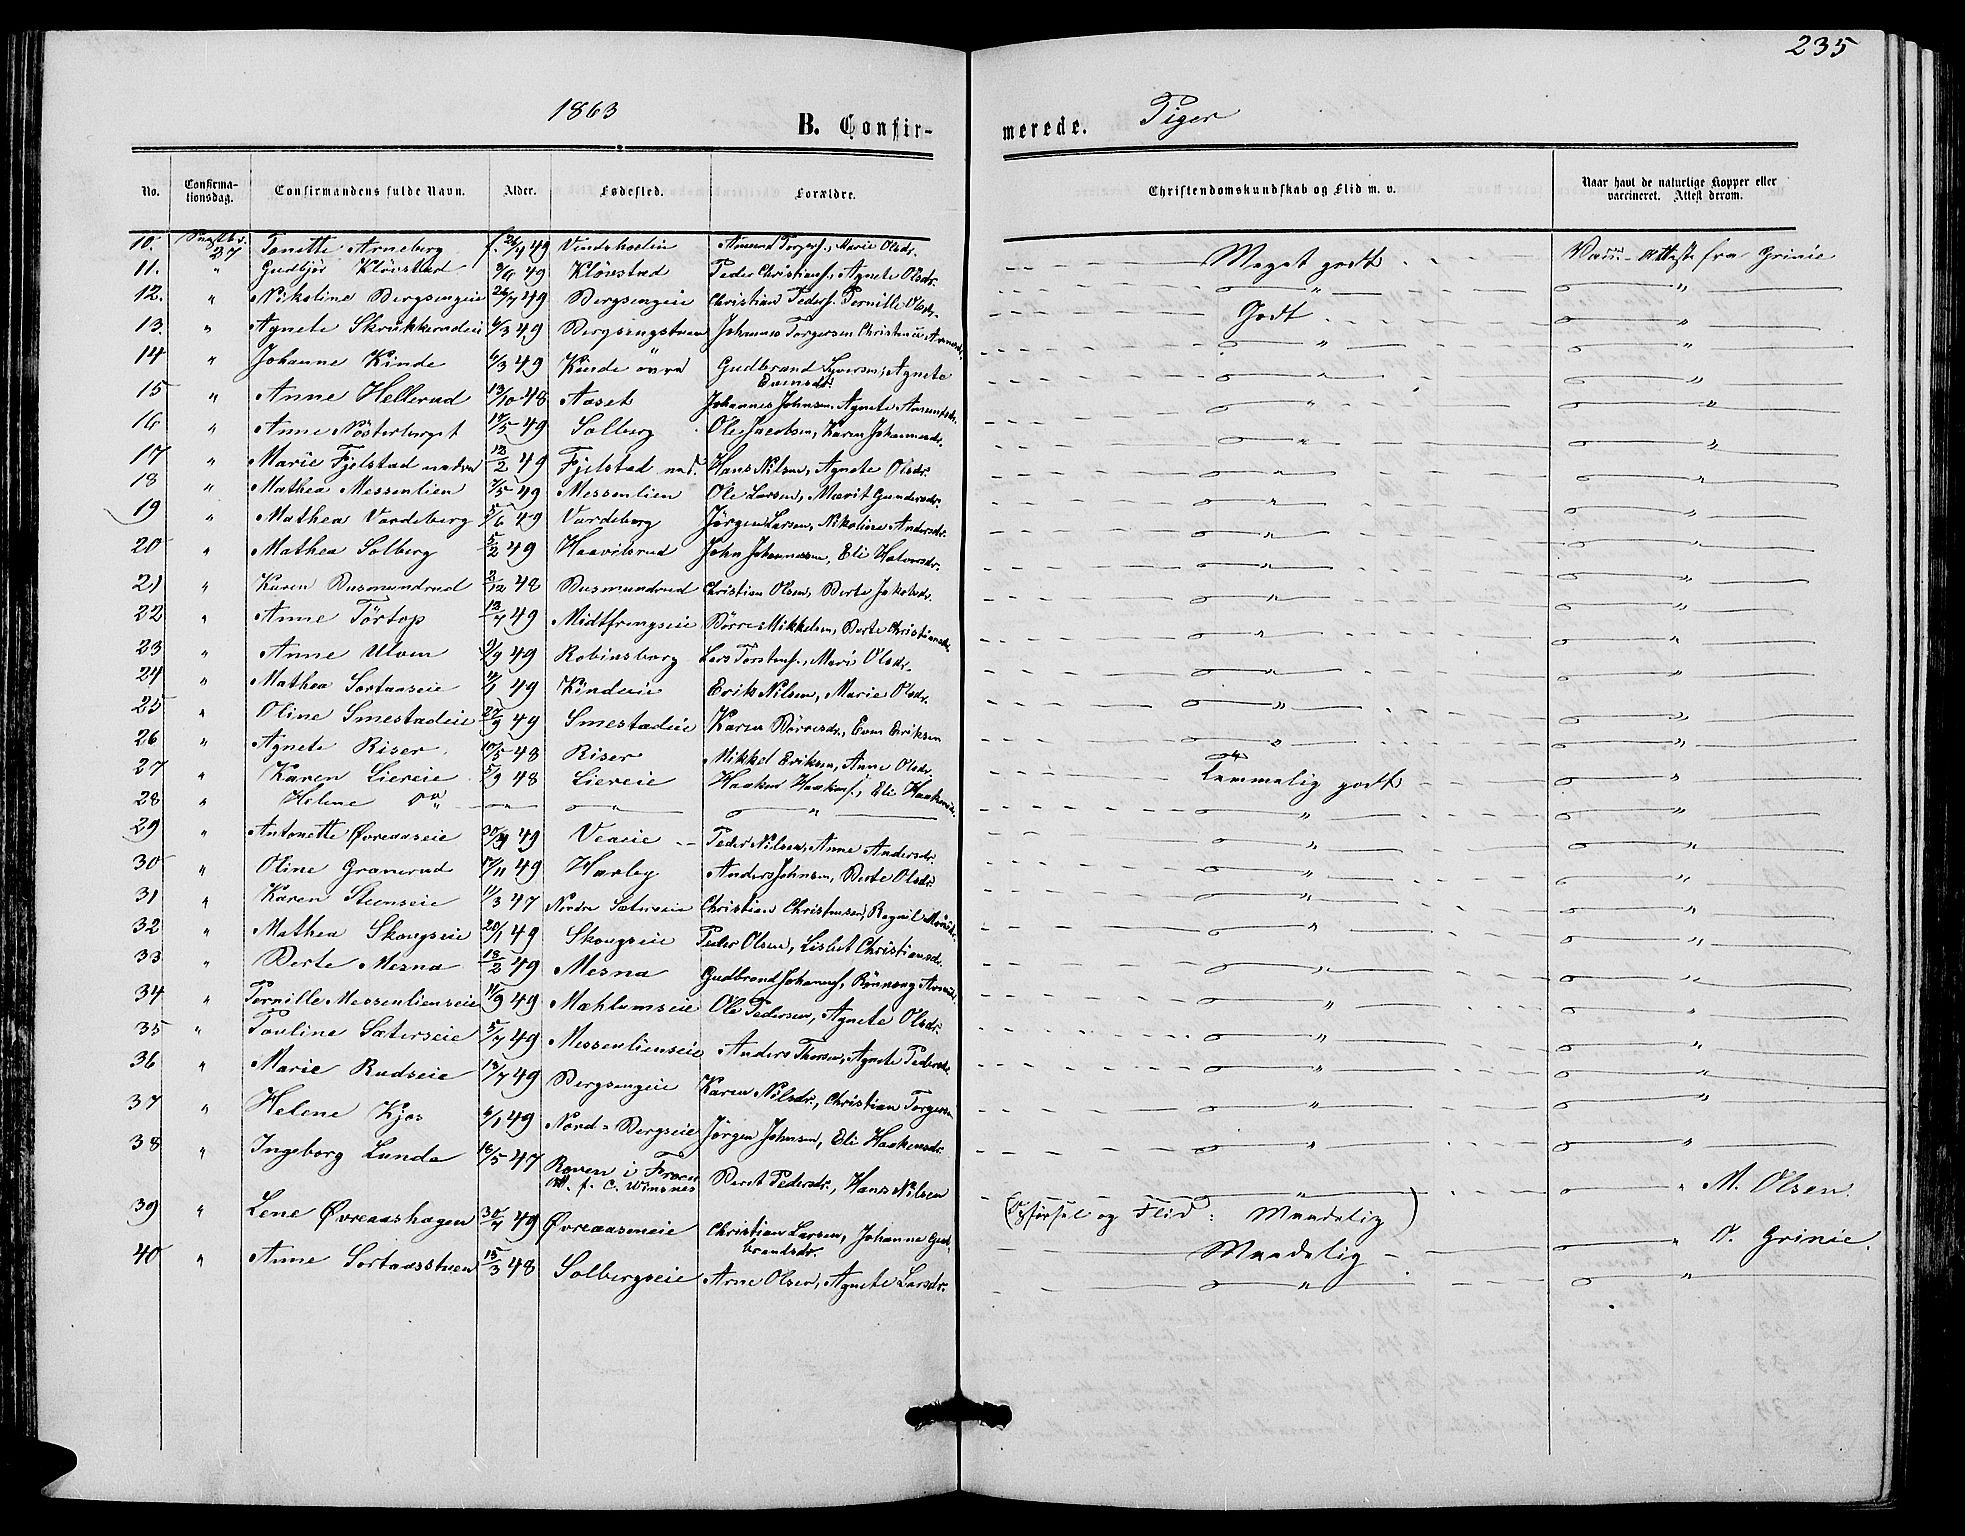 235
1863
B. Confir-
merede.
Piger
No.
Confirma-
tionsdag.
Confirmandens fulde Navn.
Alder.
Fødested.
Forældre.
Christendomskundskab og Flid m. v.
Naar havt de naturlige Kopper eller
vaccineret. Attest derom.
10. 27 Tonette Arneberg f. 26/4 49 Amund Torgersf., Marie Olsdr. Meget godt Vacc.- Attest fra Grinie
11. " Gudbjør Klövstad 49 Klövstad Peder Christiansf., Agnete Olsdr. " "
12. " Nikoline Bergsengeie 26/7 49 Bergsengeie Christian Pedersf. Pernille Olsdr. Godt "
13. " Agnete Skrukkerudeie 6/3 49 Bergsengstuen Johannes Torgersen Christine Arnesdr. " "
14 " Johanne Kinde 6/3 49 Kinde övre Gudbrand Syversen, Agnete
Evensdr. " "
15 " Anne Hellerud 13/10 48 Aaset Johannes Johnsen, Agnete Amundsdr. " "
16 " Anne Nösterberget 17/5 49 Solberg Ole Jacobsen, Karen Johannesdr. " "
17 " Marie Fjelstad nedre 12/2 49 Fjelstad ned. Hans Nilsen, Agnete Olsdr. " "
18 " Mathea Messenlien 7/5 49 Messenlien Ole Larsen, Marit Gundersdr. " "
19 " Mathea Vardeberg 5/6 49 Vardeberg Jörgen Larsen, Nikoline Andersdr. " "
20 " Mathea Solberg 5/2 49 Haavibrud John Johannessen, Eli Halvorsdr. " "
21 " Karen Busmundrud 3/12 48 Busmundrud Christian Olsen, Berte Jakobsdr. " "
22 " Anne Törtop 12/7 49 Midtfrengseie Börre Mikkelsen, Berte Christiansdr. " "
23 " Anne Ulven 9/9 49 Robinsborg Lars Torstensf., Mari Olsdr. " "
24 " Mathea Sortaaseie 49 Kindeie Erik Nilsen, Marie Olsdr. " "
25 " Oline Smestadeie 27/9 49 Smestadeie Karen Börresdr., Even Eriksen " "
26 " Agnete Riser 10/5 48 Riser Mikkel Eriksen, Anne Olsdr. Temmelig godt "
27 " Karen Liereie 5/9 48 Liereie Haaken Haakensf., Eli Haakensdr. " "
28 " Helene " " " " "
29 " Antonette Øvreaaseie 49 Veaeie Peder Nilsen, Anne Andersdr. " "
30 " Oline Granerud 17/11 49 Harby Anders Johnsen, Berte Olsdr. " "
31 " Karen Steenseie 11/3 47 Nordre Sæterseie Christian Christensen, Ragnil " "
32 " Mathea Skougseie 20/1 49 Skougseie Peder Olsen, Lisbet Christiansdr. " "
33 " Berte Mesna 18/2 49 Mesna Gudbrand Johannesf, Rönnaug " "
34 " Pernille Messenlienseie 11/9 49 Mæhlumseie Ole Pedersen, Agnete Olsdr. " "
35 " Pauline Sæterseie 5/7 49 Messenlienseie Anders Thorsen, Agnete Pedersdr. " "
36 " Marie Rudseie 13/7 49 Bergsengeie Karen Nilsdr., Christian Torgersen " "
37 " Helene Kjos 6/1 49 Nord-Bergseie Jörgen Johnsen, Eli Haakensdr. " "
38 " Ingeborg Lunde 16/5 47 Roven i Fron
C. Winsnes Beret Pedersdr., Hans Nilsen " " M. Olsen.
39 " Lene Øvreaashagen 30/7 49 Øvreaaseneie Christian Larsen, Johanne Gud-
brandsdr. (Opførsel og Flid: Maadelig)
Maadelig " Grinie.
40 " Anne Sortaasstuen 15/3 48 Solbergseie Arne Olsen, Agnete Larsdr. " "